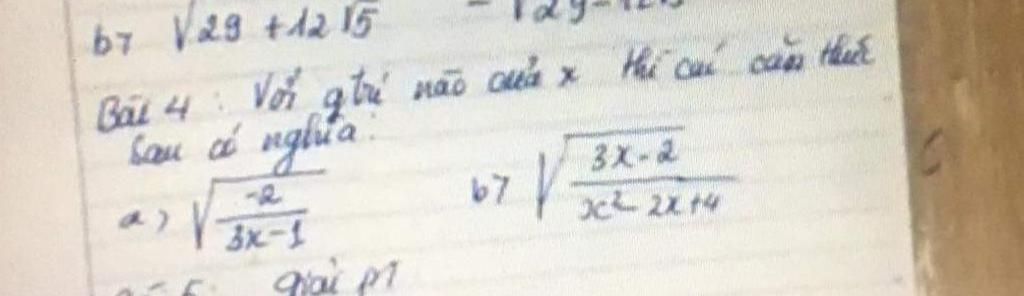 b7 √29 + 12√5 - √29-12√5
Bài 4 : Với gtrị nào của x thì các căn thức
sau có nghĩa:
a) √(-2/(3x-1)) b7 √((3x-2)/(x²-2x+4))
giải pt